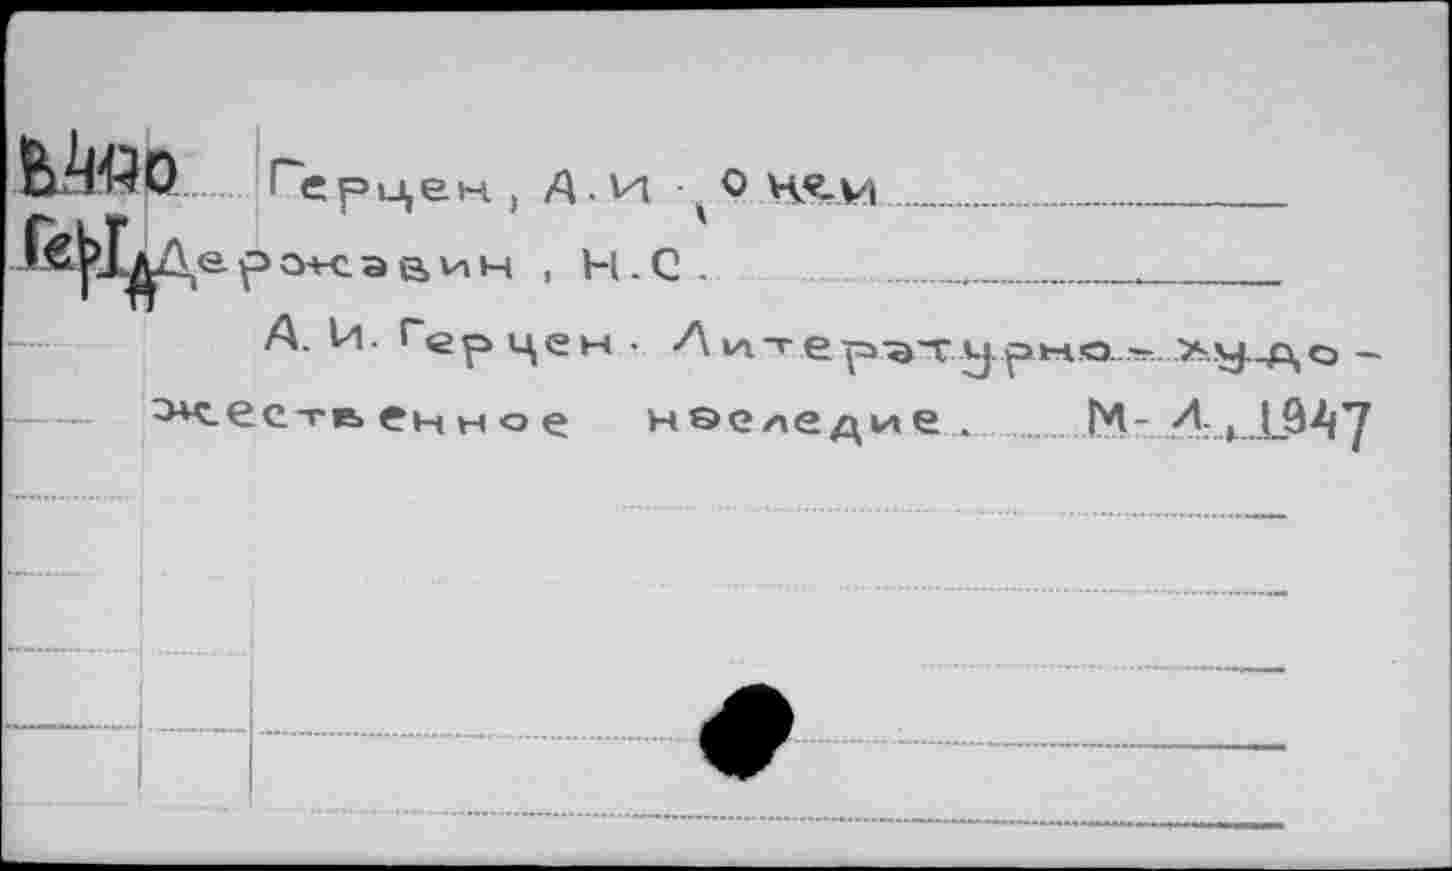 Герцен, А.И. о нем
Державин, Н.С.
А. И. Герцен. Литературно-худо-
жественное наследие. М-Л., 1947